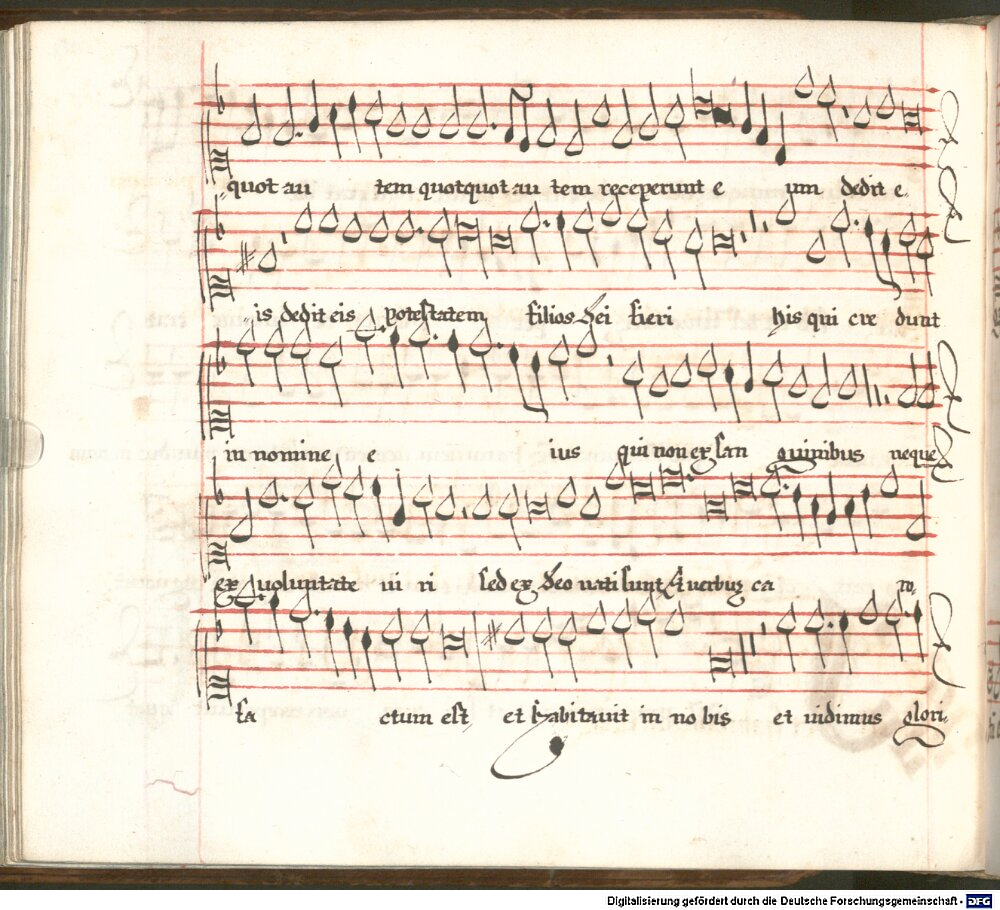 quot au tem quotquot au tem receperunt e um dedit e
is dedit eis potestatem filios dei fieri his qui cre dunt
in nomine e ius qui non ex san guinibus neque
ex voluntate ui ri sed ex deo nati sunt Et uerbug ca ro
fa ctum est et habitauit in no bis et uidimus glori
Digitalisierung gefördert durch die Deutsche Forschungsgemeinschaft - DFG